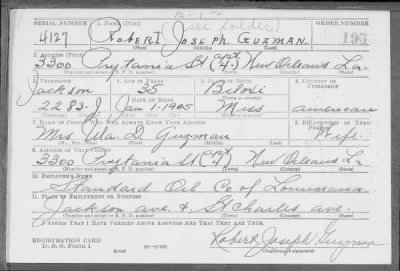 (see folder)
SERIAL NUMBER 1. NAME (Print) ORDER NUMBER
4127 ROBERT JOSEPH GUZMAN 193
(First) (Middle) (Last)
2. ADDRESS (Print)
3300 Prytania St (apt 4) New Orleans La.
(Number and street or R. F. D. number) (Town) (County) (State)
3. TELEPHONE 4. AGE IN YEARS 5. PLACE OF BIRTH 6. COUNTRY OF CITIZENSHIP
Jackson 35 Biloxi
DATE OF BIRTH
2283-J Jan 1 1905 Miss american
(Exchange) (Number) (Mo.) (Day) (Yr.) (State or country)
7. NAME OF PERSON WHO WILL ALWAYS KNOW YOUR ADDRESS 8. RELATIONSHIP OF THAT PERSON
Mrs D. Guzman Wife
(Mr., Mrs., Miss) (First) (Middle) (Last)
9. ADDRESS OF THAT PERSON
3300 Prytania St (apt 4) New Orleans La
(Number and street or R. F. D. number) (Town) (County) (State)
10. EMPLOYER'S NAME
Standard Oil Co of Louisiana
11. PLACE OF EMPLOYMENT OR BUSINESS
Jackson ave & St Charles ave.
(Number and street or R. F. D. number) (Town) (County) (State)
I AFFIRM THAT I HAVE VERIFIED ABOVE ANSWERS AND THAT THEY ARE TRUE.
REGISTRATION CARD
D. S. S. Form 1
Robert Joseph Guzman
(Registrant's signature)